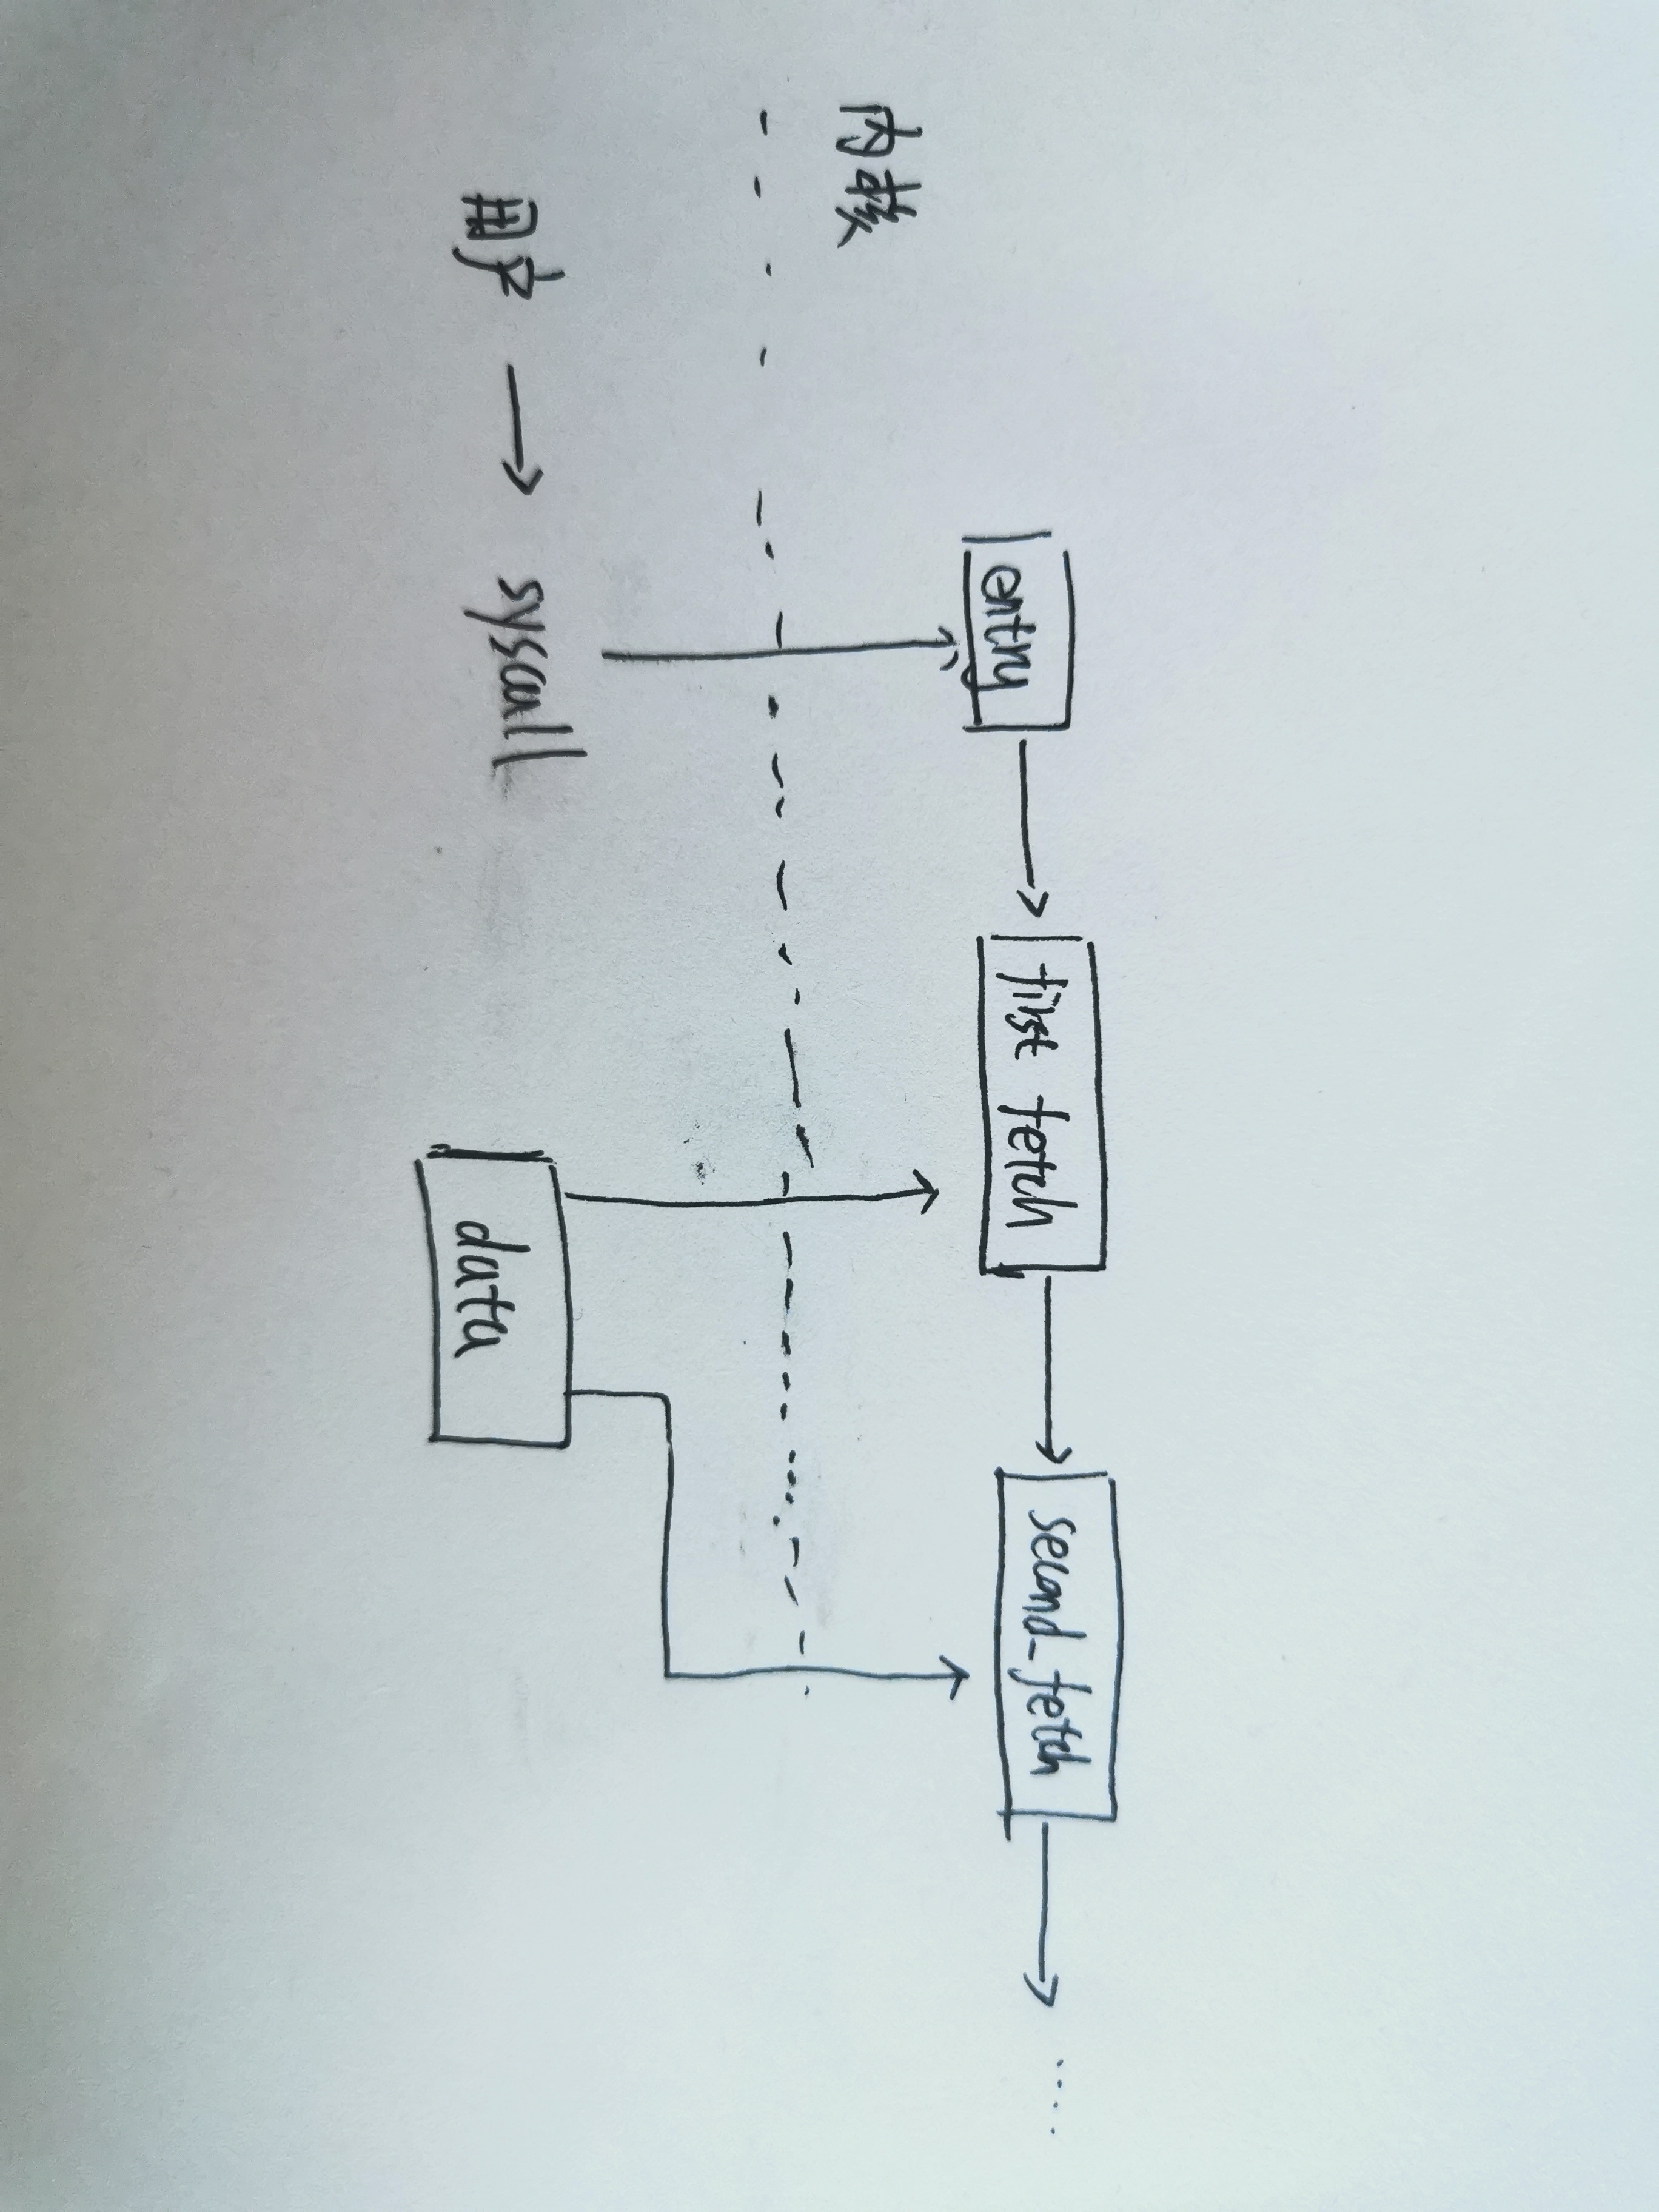 entry
first fetch
second_fetch
....
内核
用户
syscall
data